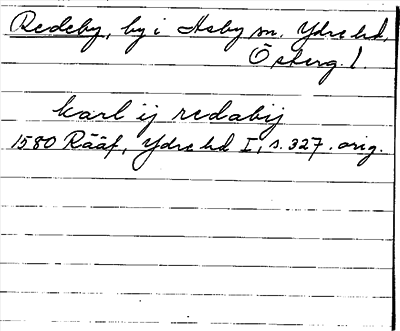 Redeby, by i Asby sn. Ydre hd,
Österg. l.
karl ij redabij
1580 Rääf, Ydre hd I, s. 327. orig.